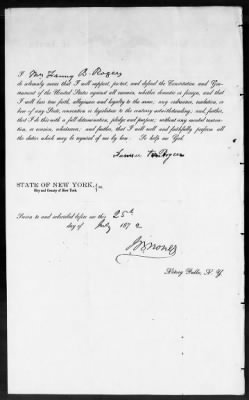 I Mrs Fanny B. Rogers
do solemnly swear that I will support, protect, and defend the Constitution and Gov-
ernment of the United States against all enemies, whether domestic or foreign, and that
I will bear true faith, allegiance and loyalty to the same, any ordinance, resolution, or
law of any State, convention or legislation to the contrary notwithstanding, and further,
that I do this with a full determination, pledge and purpose, without any mental reserva-
tion, or evasion, whatsoever; and further, that I will well and faithfully perform all
the duties which may be required of me by law. So help me God.
Rogers
STATE OF NEW YORK, } ss.
City and County of New York.
Sworn to and subscribed before me this 25th
day of July 187 2
Notary Public, N. Y.